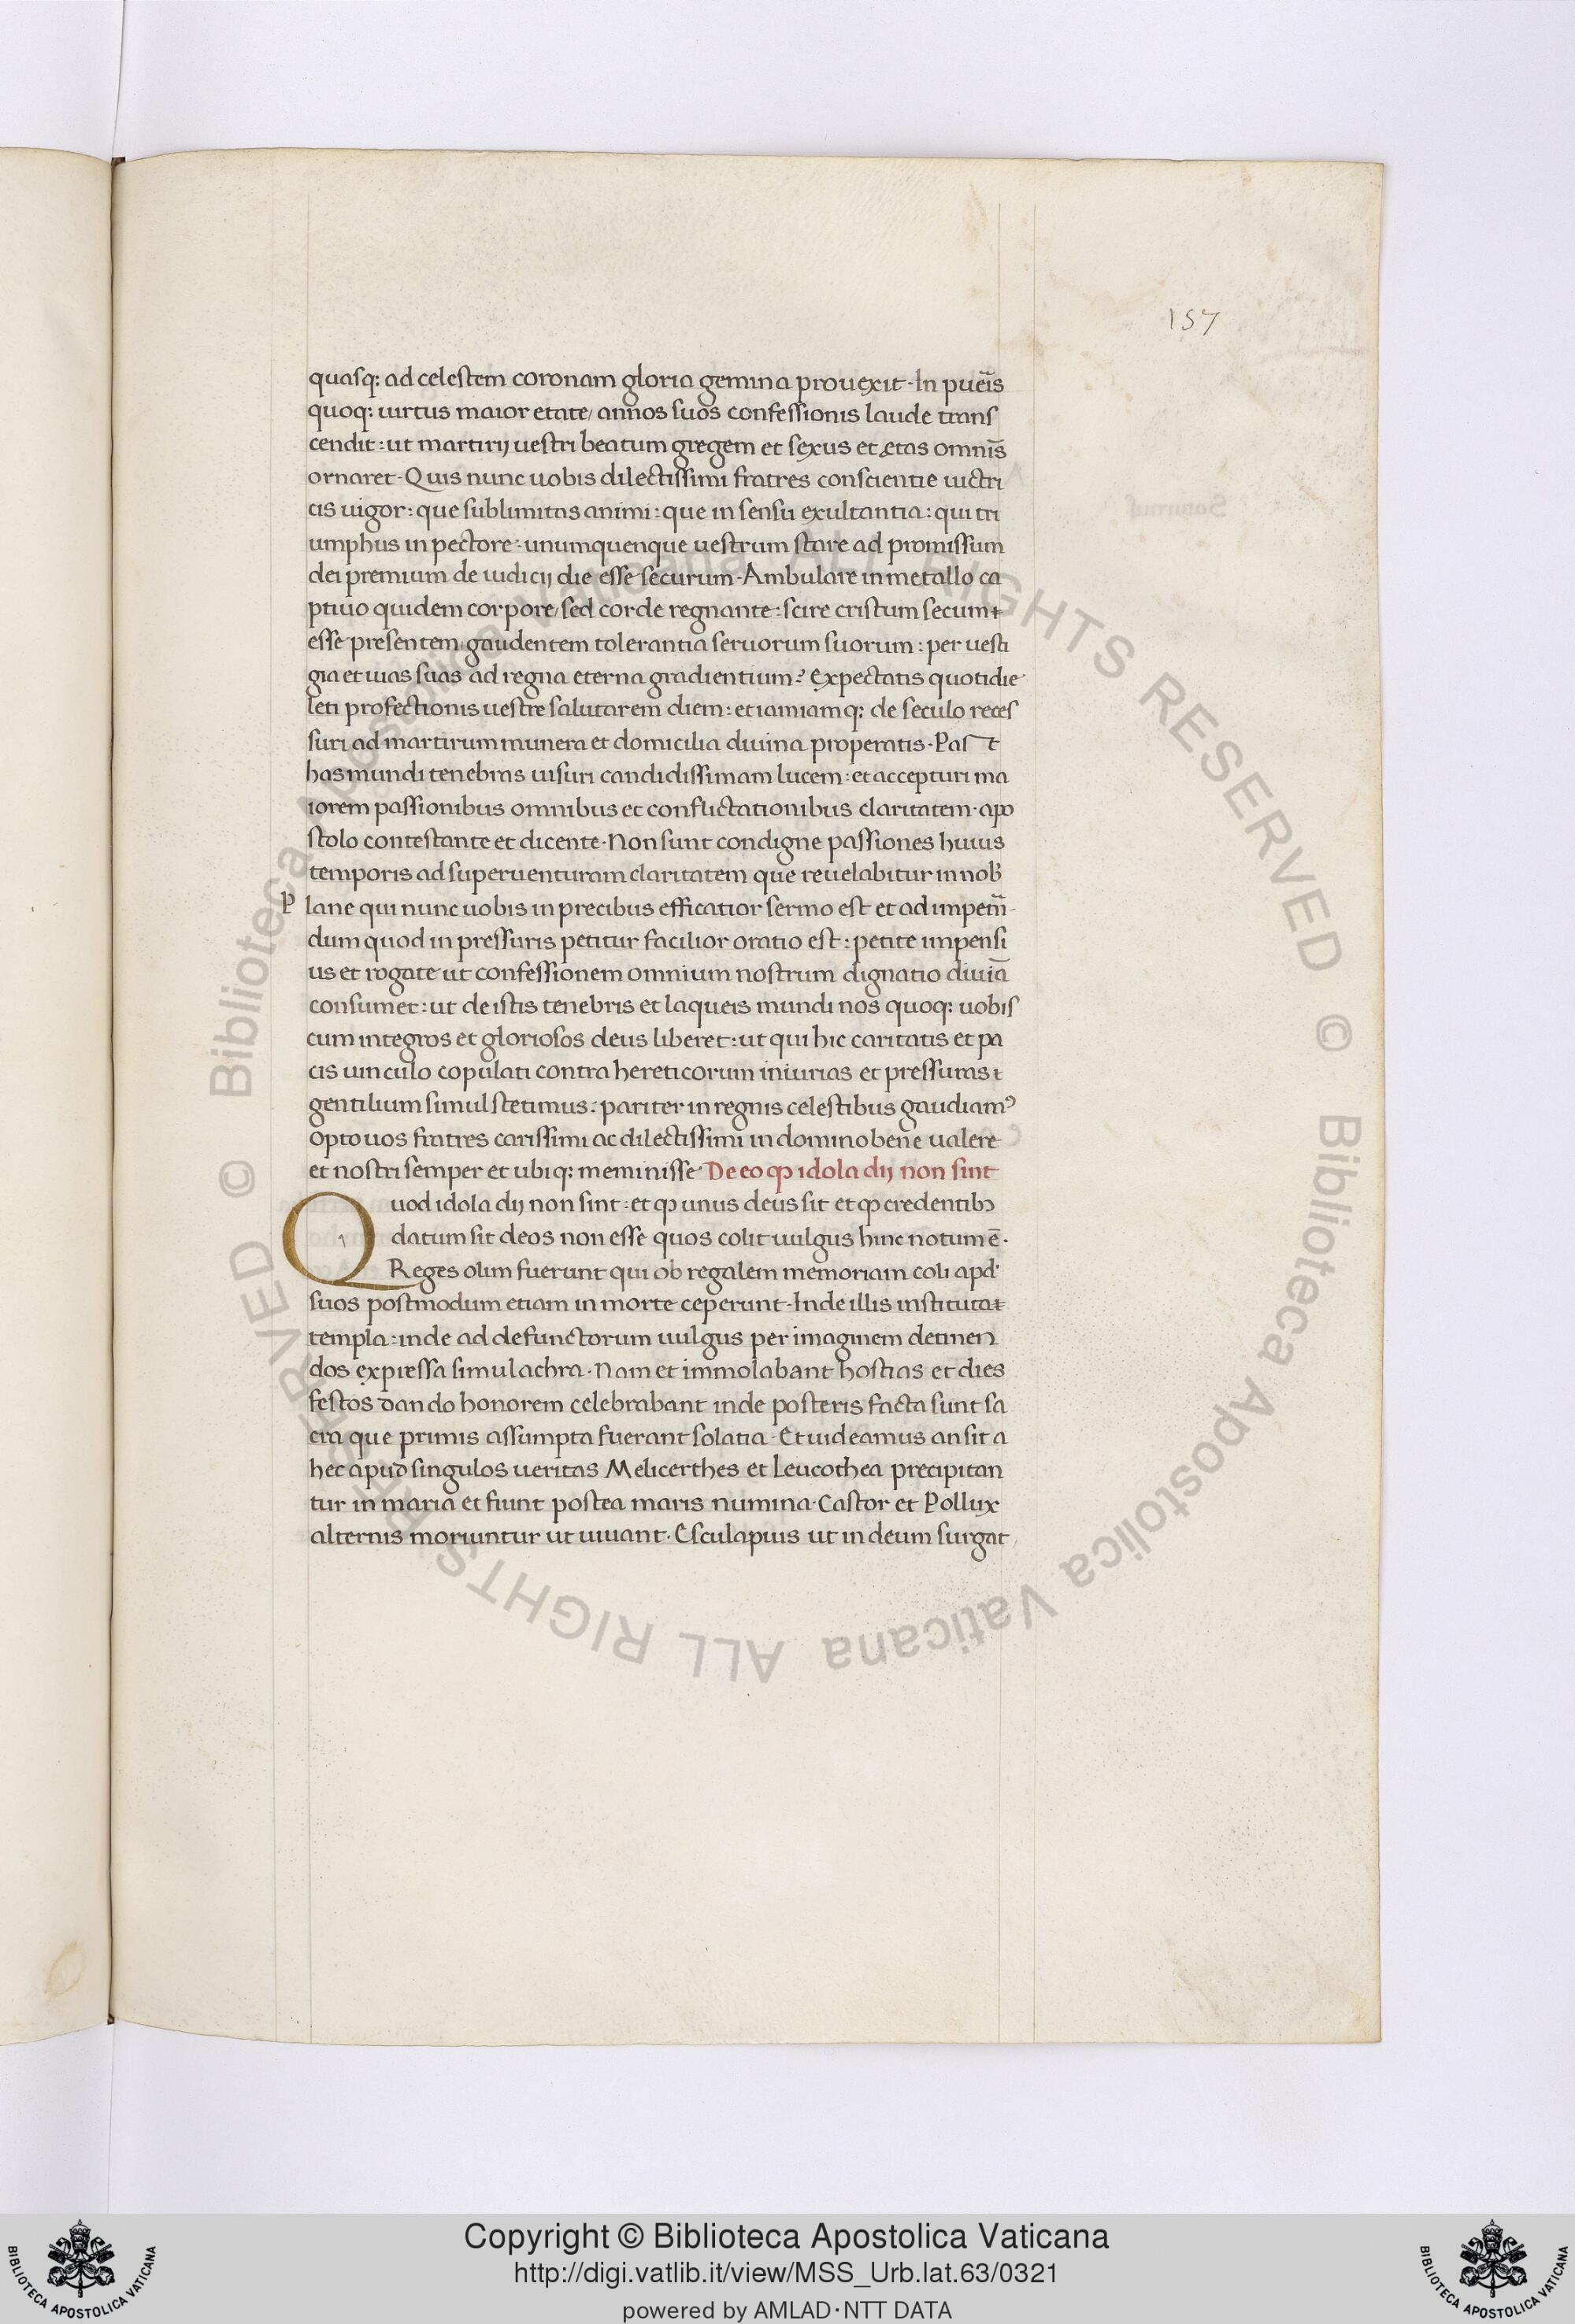 157
quasq: ad celestem coronam gloria gemina prouexit · In pueris
quoq: uirtus maior etate / annos suos confessionis laude trans
cendit : ut martirij uestri beatum gregem et sexus et ętas omnis
ornaret · Quis nunc uobis dilectissimi fratres conscientie uictri
cis uigor : que sublimitas animi : que in sensu exultantia : qui tri
umphus in pectore : unumquenque uestrum stare ad promissum
dei premium de iudicij die esse securum · Ambulare in metallo ca
ptiuo quidem corpore / sed corde regnante : scire cristum secum
esse presentem / gaudentem tolerantia seruorum suorum : per uesti
gia et uias suas ad regna eterna gradientium? Expectatis quotidie
leti profectionis uestre salutarem diem : et iamiamq: de seculo reces
suri ad martirum munera et domicilia diuina properatis · Past
has mundi tenebras uisuri candidissimam lucem : et accepturi ma
iorem passionibus omnibus et conflictationibus claritatem · apo
stolo contestante et dicente · Non sunt condigne passiones huius
temporis ad superuenturam claritatem que reuelabitur in nob'
Plane qui nunc uobis in precibus efficatior sermo est et ad impetrā
dum quod in pressuris petitur facilior oratio est : petite impensi
us et rogate ut confessionem omnium nostrum dignatio diuīa
consumet : ut de istis tenebris et laqueis mundi nos quoq: uobis
cum integros et gloriosos deus liberet : ut qui hic caritatis et pa
cis uinculo copulati contra hereticorum iniurias et pressuras
gentilium simul stetimus : pariter in regnis celestibus gaudiamꝰ
Opto uos fratres carissimi ac dilectissimi in domino bene ualere
et nostri semper et ubiq: meminisse De eo ꝙ idola dij non sint
Quod idola dij non sint : et ꝙ unus deus sit et ꝙ credentibꝰ
datum sit deos non esse quos colit uulgus hinc notum ē ·
Reges olim fuerunt qui ob regalem memoriam coli apd'
suos postmodum etiam in morte ceperunt · Inde illis instituta
templa : inde ad defunctorum uulgus per imaginem detinen
dos expressa simulachra · Nam et immolabant hostias et dies
festos dando honorem celebrabant inde posteris facta sunt sa
cra que primis assumpta fuerant solatia · Et uideamus an sit a
hec apud singulos ueritas Melicerthes et Leucothea precipitan
tur in maria et fiunt postea maris numina · Castor et Pollux
alternis moriuntur ut uiuant · Esculapius ut in deum surgat
© Biblioteca Apostolica Vaticana ALL RIGHTS RESERVED
© Biblioteca Apostolica Vaticana ALL RIGHTS RESERVED
Copyright © Biblioteca Apostolica Vaticana
http://digi.vatlib.it/view/MSS_Urb.lat.63/0321
powered by AMLAD·NTT DATA
BIBLIOTECA APOSTOLICA VATICANA
BIBLIOTECA APOSTOLICA VATICANA